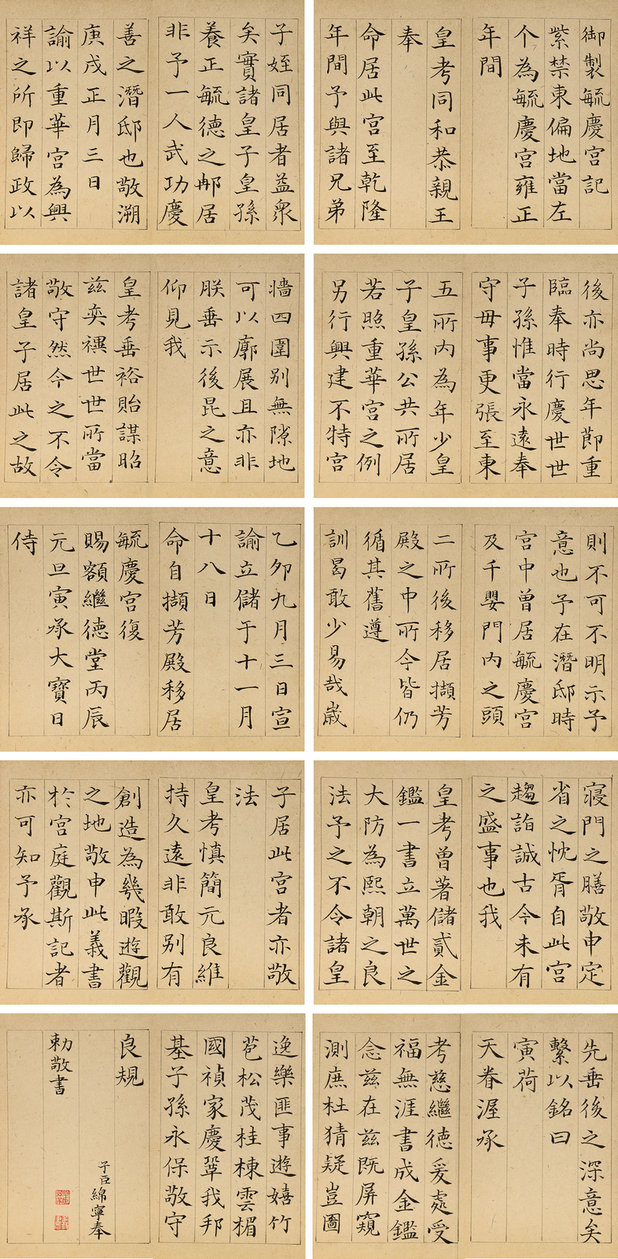 御製毓慶宮記
紫禁東偏地當左
个為毓慶宮雍正
年間
皇考同和恭親王
奉
命居此宮至乾隆
年間予與諸兄弟
子姪同居者益衆
矣實諸皇子皇孫
養正毓德之邸居
非予一人武功慶
善之潛邸也敬溯
庚戌正月三日
諭以重華宮為興
祥之所即歸政以
後亦尚思年節重
臨奉時行慶世世
子孫惟當永遠奉
守毋事更張至東
五所內為年少皇
子皇孫公共所居
若照重華宮之例
另行興建不特宮
牆四圍別無隙地
可以廓展且亦非
朕垂示後昆之意
仰見我
皇考垂裕貽謀昭
茲奕禩世世所當
敬守然今之不令
諸皇子居此之故
則不可不明示予
意也予在潛邸時
宮中曾居毓慶宮
及千嬰門內之頭
二所後移居擷芳
殿之中所今皆仍
循其舊遵
訓曷敢少易哉歲
乙卯九月三日宣
諭立儲于十一月
十八日
命自擷芳殿移居
毓慶宮復
賜額繼德堂丙辰
元旦寅承大寶日
侍
寢門之膳敬申定
省之忱胥自此宮
趨詣誠古今未有
之盛事也我
皇考曾著儲貳金
鑑一書立萬世之
大防為熙朝之良
法予之不令諸皇
子居此宮者亦敬
法
皇考慎簡元良維
持久遠非敢別有
創造為幾暇遊觀
之地敬申此義書
於宮庭觀斯記者
亦可知予承
先垂後之深意矣
繫以銘曰
寅荷
天眷渥承
考慈繼德爰處受
福無涯書成金鑑
念茲在茲既屏窺
測庶杜猜疑豈圖
逸樂匪事遊嬉竹
苞松茂桂棟雲楣
國禎家慶鞏我邦
基子孫永保敬守
良規
子臣綿寧奉
勅敬書